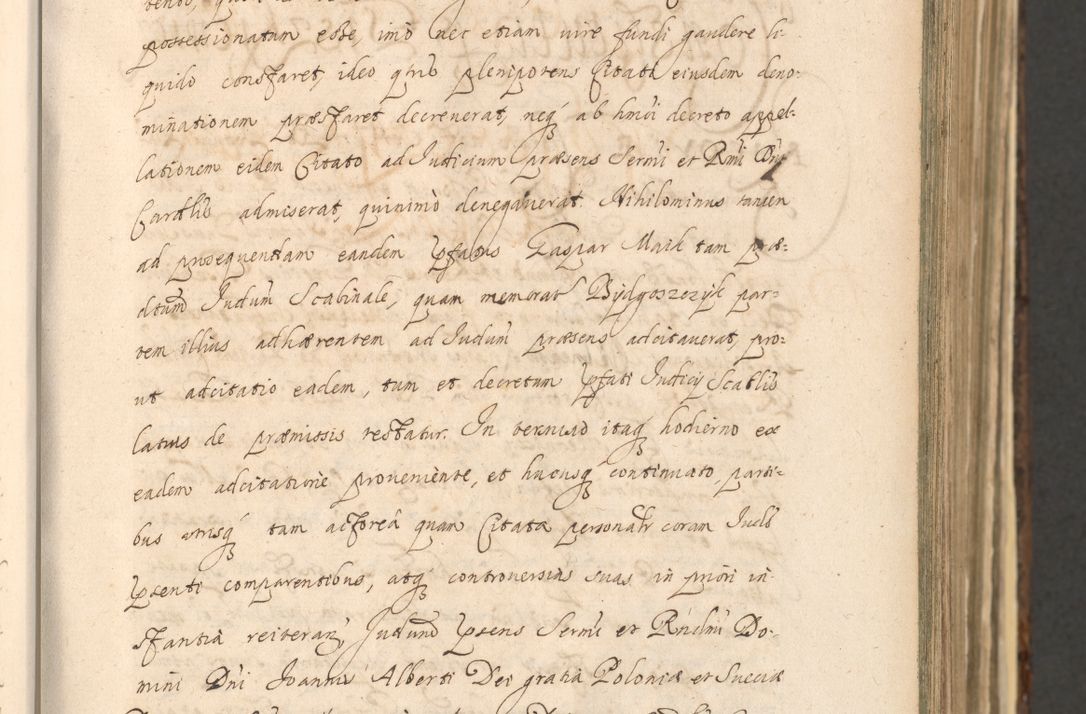 possessionatum esse, imo nec etiam uire fundi gaudere li-
quido constaret, ideo qtus plenipotens Citata eiusdem deno-
minationem præstaret decreuerat, neq ab hmoi decreto appel-
lationem eidem Citato ad Iudicium præsens Sermi et Rmi Dni
Cardlis admiserat, quinimò denegauerat. Nihilominus tamen
ad prosequendam eandem pfatus Gaspar Maik tam præ-
dtum Judium Scabinale, quam memorat Bydgoszczyk par-
tem illius adhærentem ad Iudium præsens adcitauerat, pro-
ut adcitatio eadem, tum et decretum pfati Judicij Scablis
latius de præmissis testatur. In termino itaq hodierno ex
eadem adcitatione proueniente, et hucusq continuato, parti-
bus utrisq tam actorea quam Citata personalr coram Judo
psenti comparentibus, atq controuersias suas in priori in-
stantia reiteran, Judium psens Sermi et Rndmi Do-
mini Dni Joannis Alberti Dei gratia Poloniæ et Sueciæ